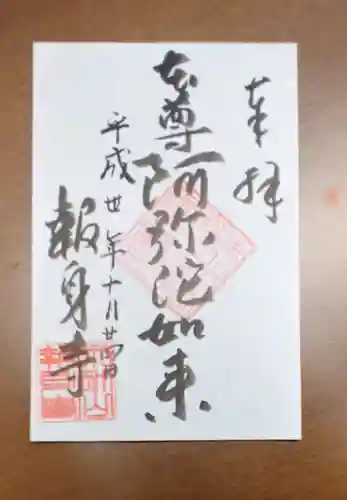 奉拝
本尊阿弥陀如来
平成廿年十月廿四日
報身寺